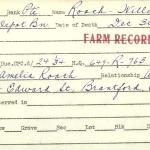 Rank Pte Name Roach Will
Depot Bn. Date of Death Dec 30
FARM RECOR
Due. CPC.41 29.34 N.E. 649-R-763
Amelia Roach Relationship
Edward St. Brantford
erved in
rave Row Sec Lot Blk